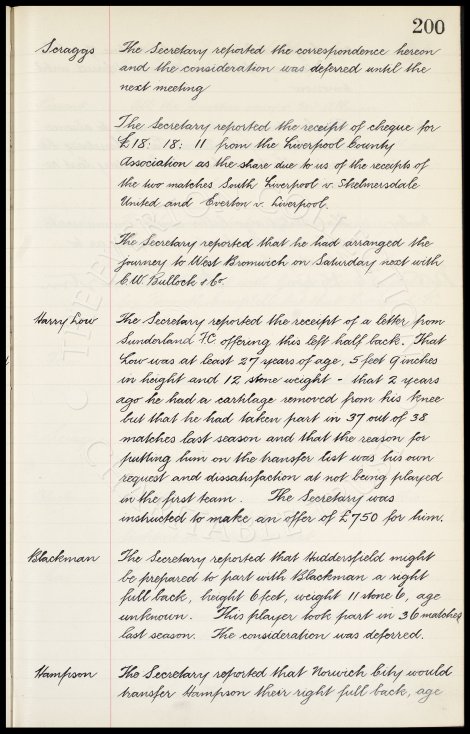 200
Scraggs The Secretary reported the correspondence hereon
and the consideration was deferred until the
next meeting
The Secretary reported the receipt of cheque for
£18: 18: 11 from the Liverpool County
Association as the share due to us of the receipts of
the two matches South Liverpool v. Skelmersdale
United and Everton v. Liverpool.
The Secretary reported that he had arranged the
journey to West Bromwich on Saturday next with
C.W. Bullock & Co.
Harry Low The Secretary reported the receipt of a letter from
Sunderland FC offering this left half back. That
Low was at least 27 years of age, 5 feet 9 inches
in height and 12 stone weight - that 2 years
ago he had a cartilage removed from his knee
but that he had taken part in 37 out of 38
matches last season and that the reason for
putting him on the transfer list was his own
request and dissatisfaction at not being played
in the first team. The Secretary was
instructed to make an offer of £750 for him.
Blackman The Secretary reported that Huddersfield might
be prepared to part with Blackman a right
full back, height 6 feet, weight 11 stone 6, age
unknown. This player took part in 36 matches
last season. The consideration was deferred.
Hampson The Secretary reported that Norwich City would
transfer Hampson their right full back, age